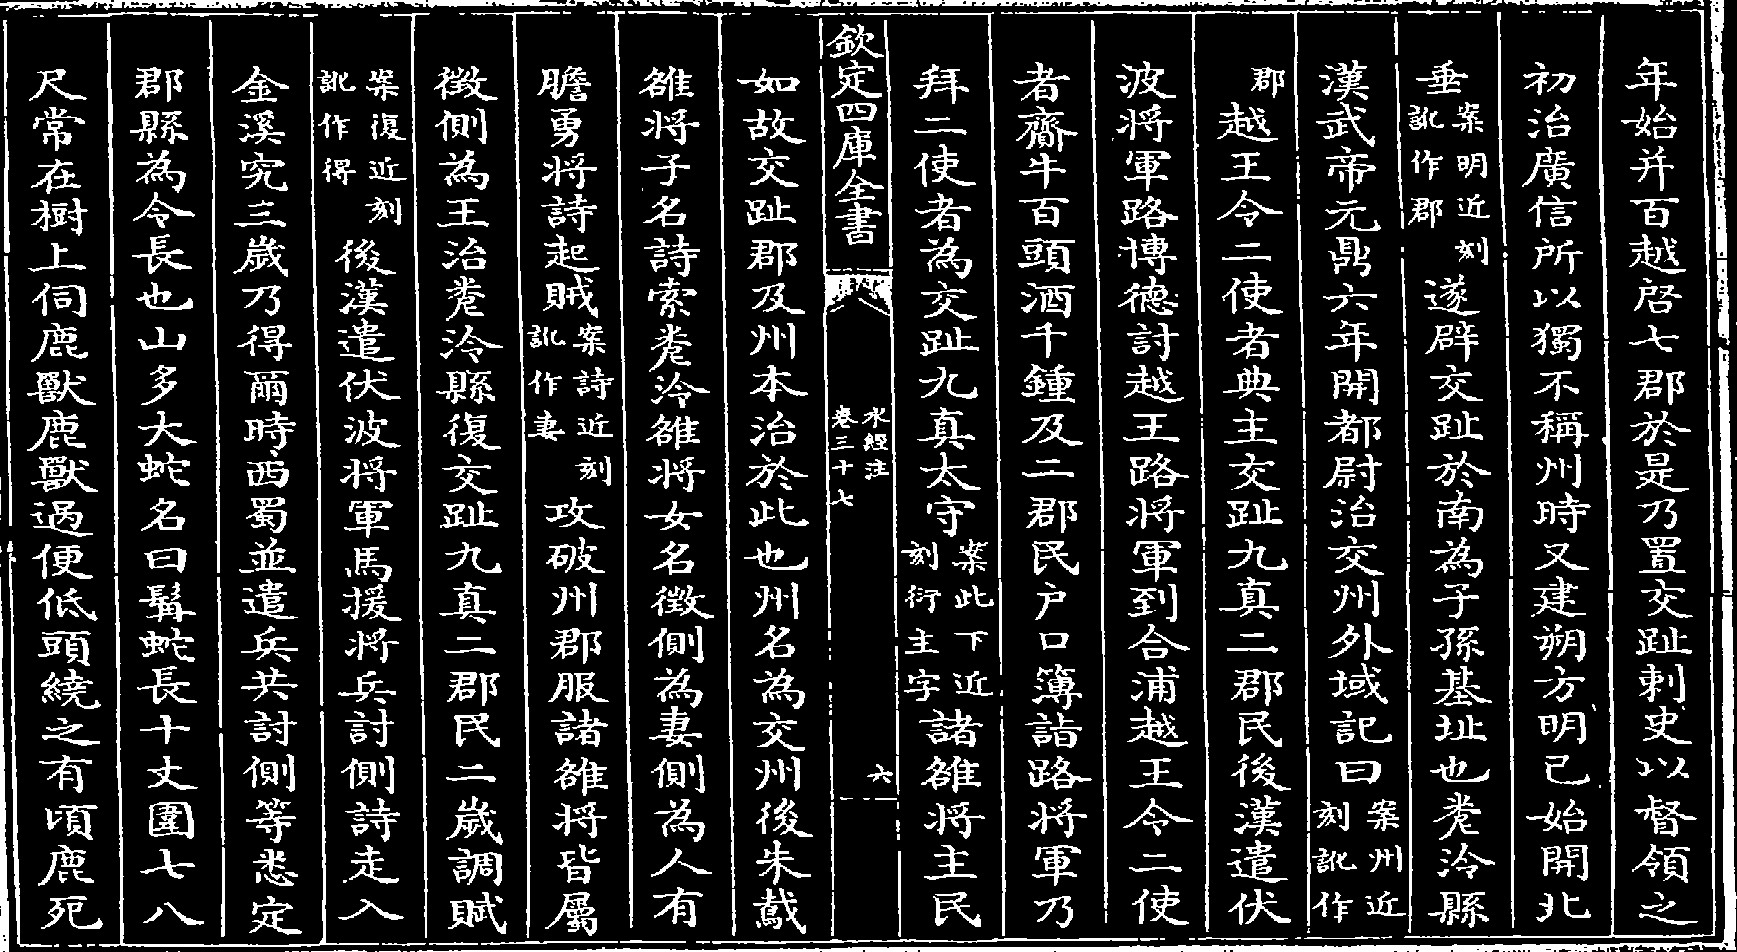 年始并百越啓七郡於是乃置交趾刺史以督領之
初治廣信所以獨不稱州時又建朔方明已始開北
垂案明近刻訛作郡遂辟交趾於南為子孫基址也麊泠縣
漢武帝元鼎六年開都尉治交州外域記曰案州近刻訛作
郡越王令二使者典主交趾九真二郡民後漢遣伏
波將軍路博德討越王路將軍到合浦越王令二使
者齎牛百頭酒千鍾及二郡民户口簿詣路將軍乃
拜二使者為交趾九真太守案此下近刻衍主字諸雒將主民
欽定四庫全書
水經注
卷三十七
六
如故交趾郡及州本治於此也州名為交州後朱䳒
雒將子名詩索麊泠雒將女名徵側為妻側為人有
膽勇將詩起賊案詩近刻訛作妻攻破州郡服諸雒將皆屬
徵側為王治麊泠縣復交趾九真二郡民二歲調賦
案復近刻訛作得後漢遣伏波將軍馬援將兵討側詩走入
金溪究三歲乃得爾時西蜀並遣兵共討側等悉定
郡縣為令長也山多大蛇名曰髯蛇長十丈圍七八
尺常在樹上伺鹿獸鹿獸過便低頭繞之有頃鹿死